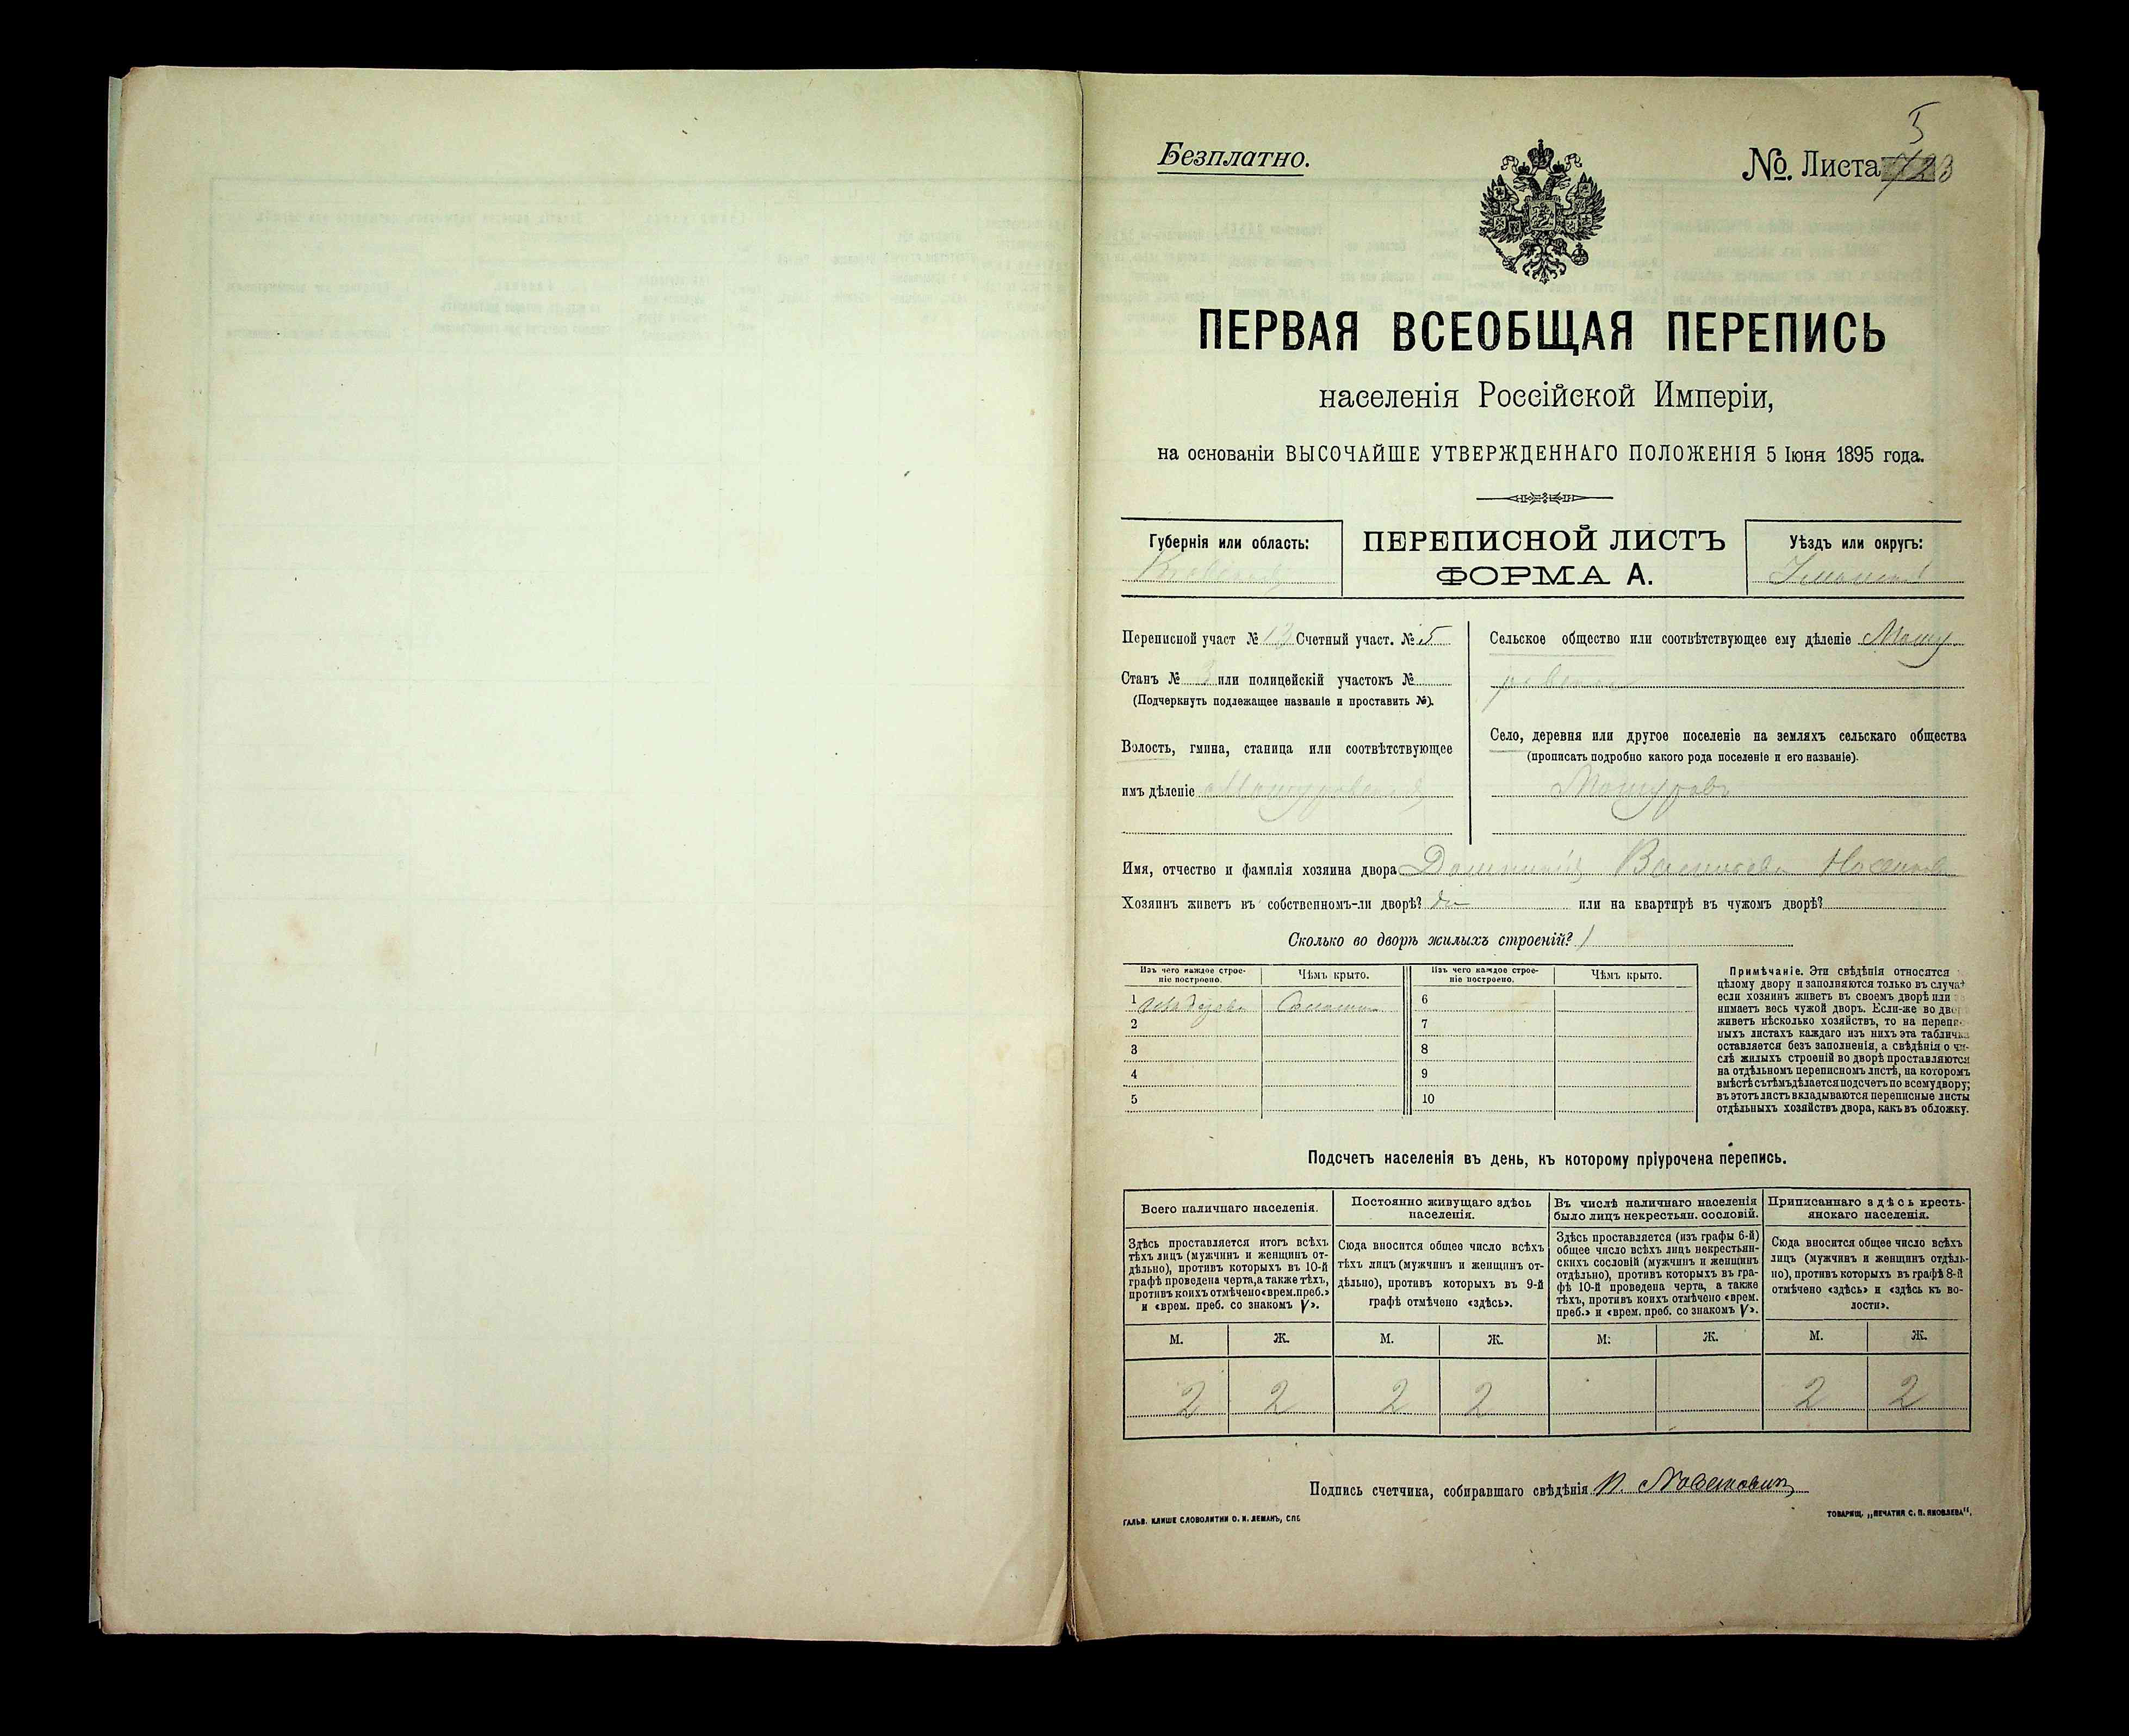 Безплатно.
№. Листа
5
ПЕРВАЯ ВСЕОБЩАЯ ПЕРЕПИСЬ
населенія Россійской Имперіи,
на основаніи ВЫСОЧАЙШЕ УТВЕРЖДЕННАГО ПОЛОЖЕНІЯ 5 Іюня 1895 года.
Губернія или область:
Кіевская
ПЕРЕПИСНОЙ ЛИСТЪ
ФОРМА А.
Уѣздъ или округъ:
Уманскій
Переписной участ № 13 Счетный участ. № 5
Станъ № 3 или полицейскій участокъ №
(Подчеркнуть подлежащее названіе и проставить №).
Волость, гмина, станица или соотвѣтствующее
имъ дѣленіе Машуровская
Сельское общество или соотвѣтствующее ему дѣленіе Машу
ровское
Село, деревня или другое поселеніе на земляхъ сельскаго общества
(прописать подробно какого рода поселеніе и его названіе).
Машуровъ
Имя, отчество и фамилія хозяина двора Васильевъ
Хозяинъ живетъ въ собственномъ-ли дворѣ? да или на квартирѣ въ чужомъ дворѣ?
Сколько во дворѣ жилыхъ строеній? 1
Изъ чего каждое строе-
ніе построено.
Чѣмъ крыто.
Изъ чего каждое строе-
ніе построено.
Чѣмъ крыто.
1 Соломою
2
3
4
5
6
7
8
9
10
Примѣчаніе. Эти свѣдѣнія относятся
цѣлому двору и заполняются только въ случаѣ
если хозяинъ живетъ въ своемъ дворѣ или
нимаетъ весь чужой дворъ. Если-же во дворѣ
живетъ нѣсколько хозяйствъ, то на перепис-
ныхъ листахъ каждаго изъ нихъ эта табличка
оставляется безъ заполненія, а свѣдѣнія о чи-
слѣ жилыхъ строеній во дворѣ проставляются
на отдѣльномъ переписномъ листѣ, на которомъ
вмѣстѣ съ тѣмъ дѣлается подсчетъ по всему двору;
въ этотъ листъ вкладываются переписные листы
отдѣльныхъ хозяйствъ двора, какъ въ обложку.
Подсчетъ населенія въ день, къ которому пріурочена перепись.
Всего наличнаго населенія.
Здѣсь проставляется итогъ всѣхъ
тѣхъ лицъ (мужчинъ и женщинъ от-
дѣльно), противъ которыхъ въ 10-й
графѣ проведена черта, а также тѣхъ,
противъ коихъ отмѣчено «врем. преб.»
и «врем. преб. со знакомъ V».
Постоянно живущаго здѣсь
населенія.
Сюда вносится общее число всѣхъ
тѣхъ лицъ (мужчинъ и женщинъ от-
дѣльно), противъ которыхъ въ 9-й
графѣ отмѣчено «здѣсь».
Въ числѣ наличнаго населенія
было лицъ некрестьян. сословій.
Здѣсь проставляется (изъ графы 6-й)
общее число всѣхъ лицъ некрестьян-
скихъ сословій (мужчинъ и женщинъ
отдѣльно), противъ которыхъ въ гра-
фѣ 10-й проведена черта, а также
тѣхъ, противъ коихъ отмѣчено «врем.
преб.» и «врем. преб. со знакомъ V».
Приписаннаго здѣсь кресть-
янскаго населенія.
Сюда вносится общее число всѣхъ
лицъ (мужчинъ и женщинъ отдѣль-
но), противъ которыхъ въ графѣ 8-й
отмѣчено «здѣсь» и «здѣсь къ во-
лости».
М. Ж. М. Ж. М: Ж. М. Ж.
2 2 2 2 2 2
Подпись счетчика, собиравшаго свѣдѣнія
ГАЛЬВ. КЛИШЕ СЛОВОЛИТНИ О. И. ЛЕМАНЪ, СПБ.
ТОВАРИЩ. „ПЕЧАТНЯ С. П. ЯКОВЛЕВА“.